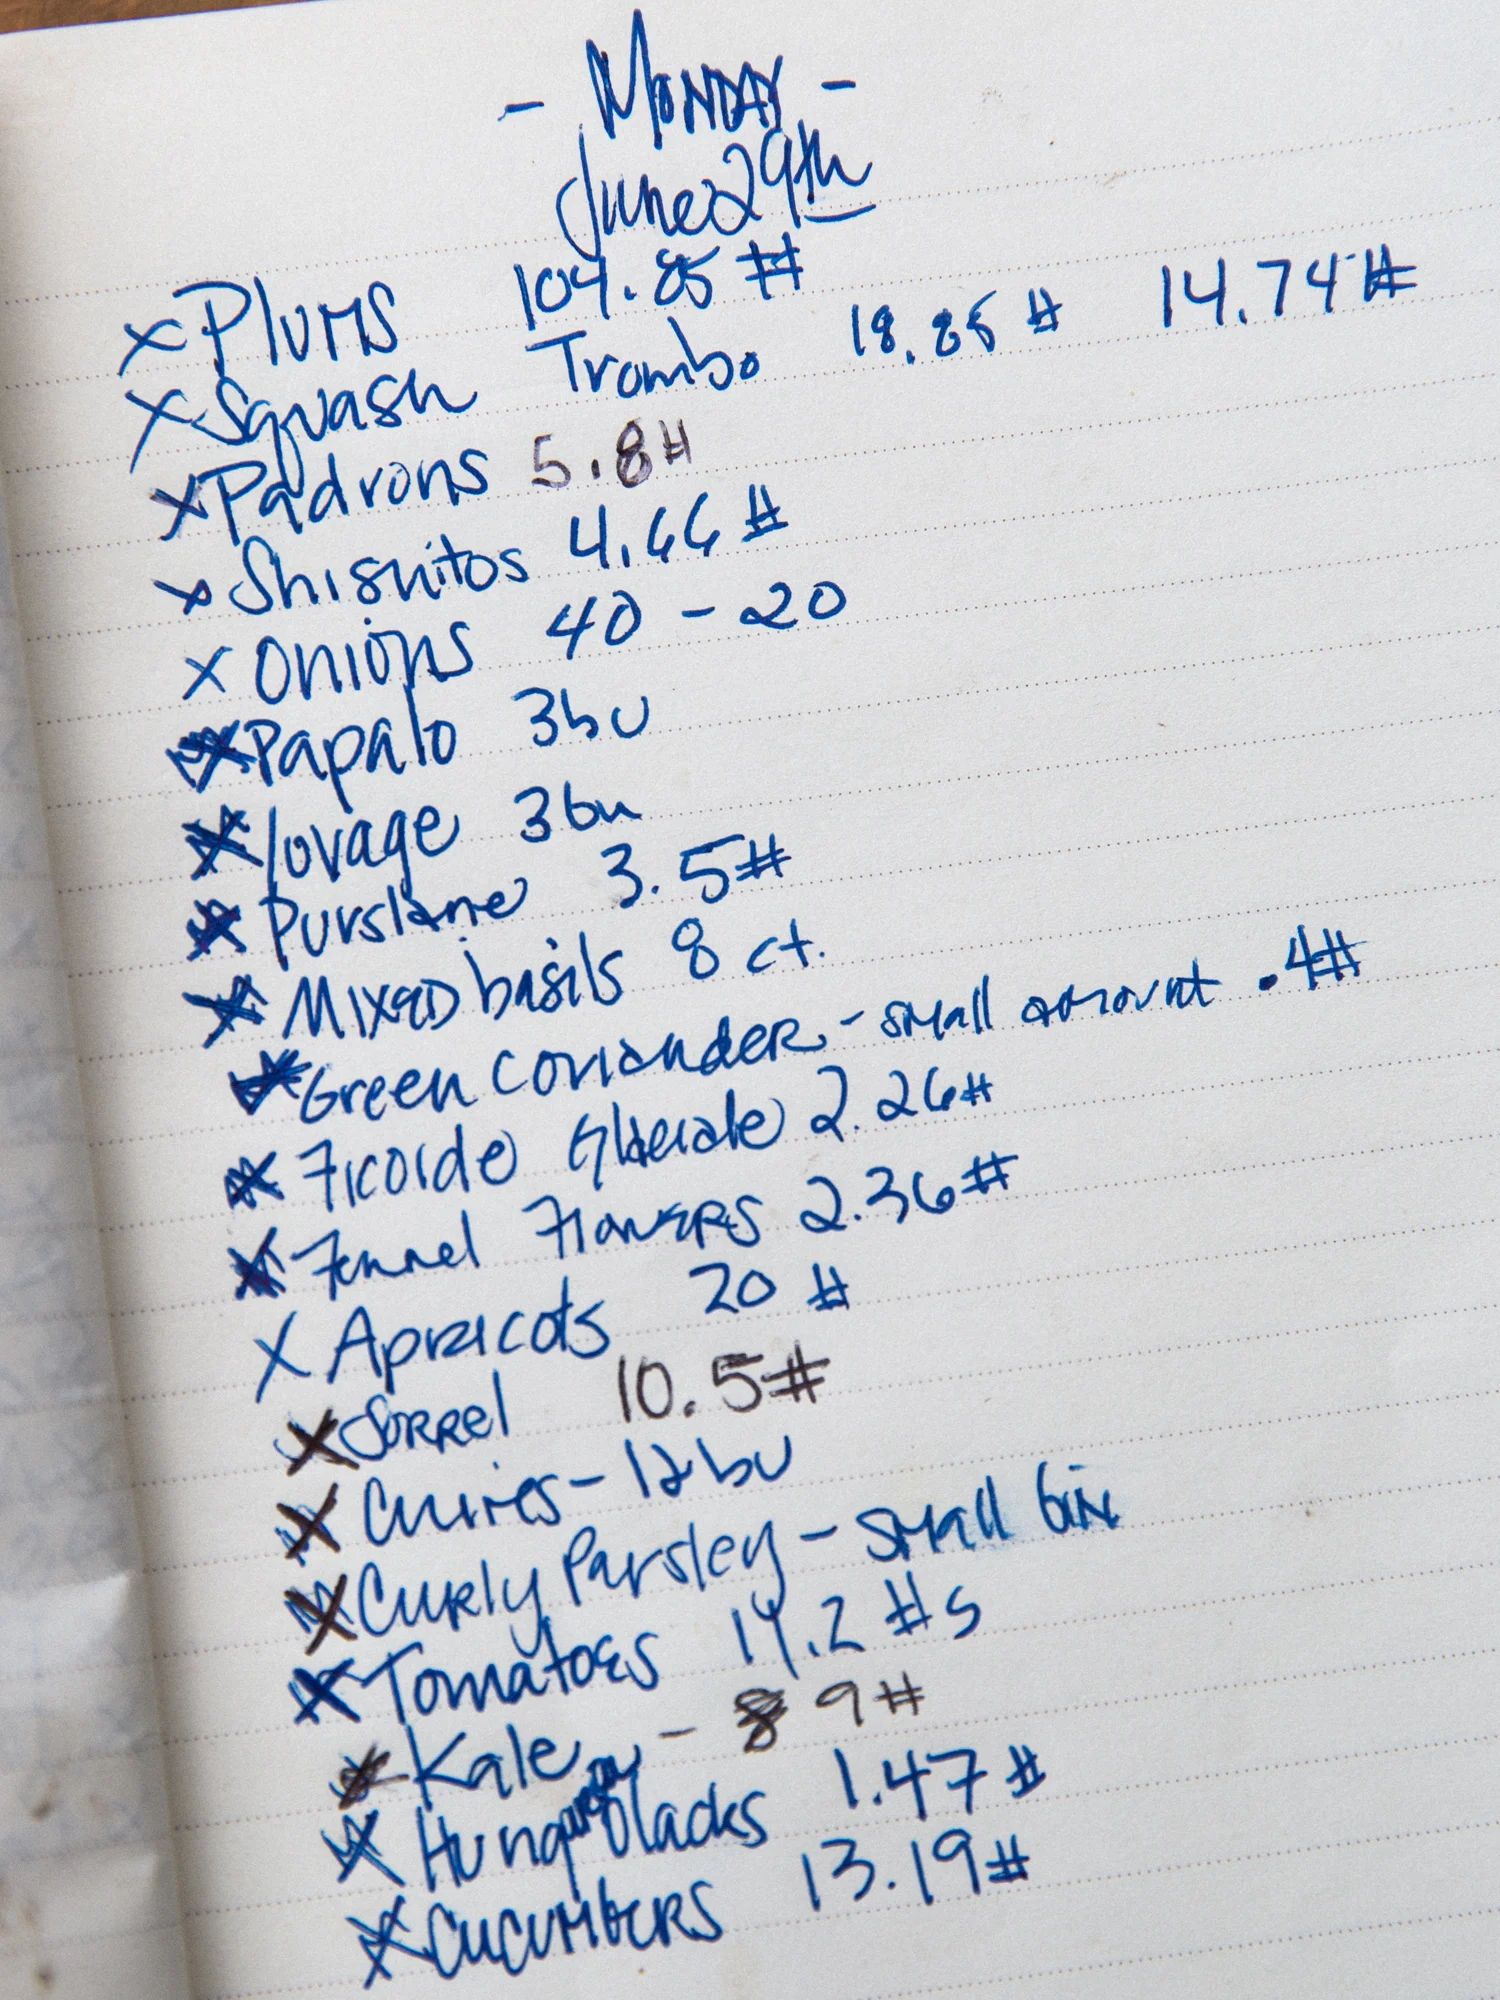 - MONDAY -
June 29th
x Plums 104.85 #
x Squash Trombo 18.85 # 14.74 #
x Padrons 5.8 #
x Shishitos 4.66 #
x Onions 40 - 20
x Papalo 3bu
x lovage 3bu
x Purslane 3.5#
x Mixed basils 8 ct.
x Green Coriander - small amount .4#
x Ficoide Glaciale 2.26#
x Fennel Flowers 2.36#
x Apricots 20 #
x Sorrel 10.5#
x Chives - 12 bu
x Curly Parsley - small bin
x Tomatoes 14.2 #s
x Kale - 9#
x Hungarian blacks 1.47 #
x Cucumbers 13.19#